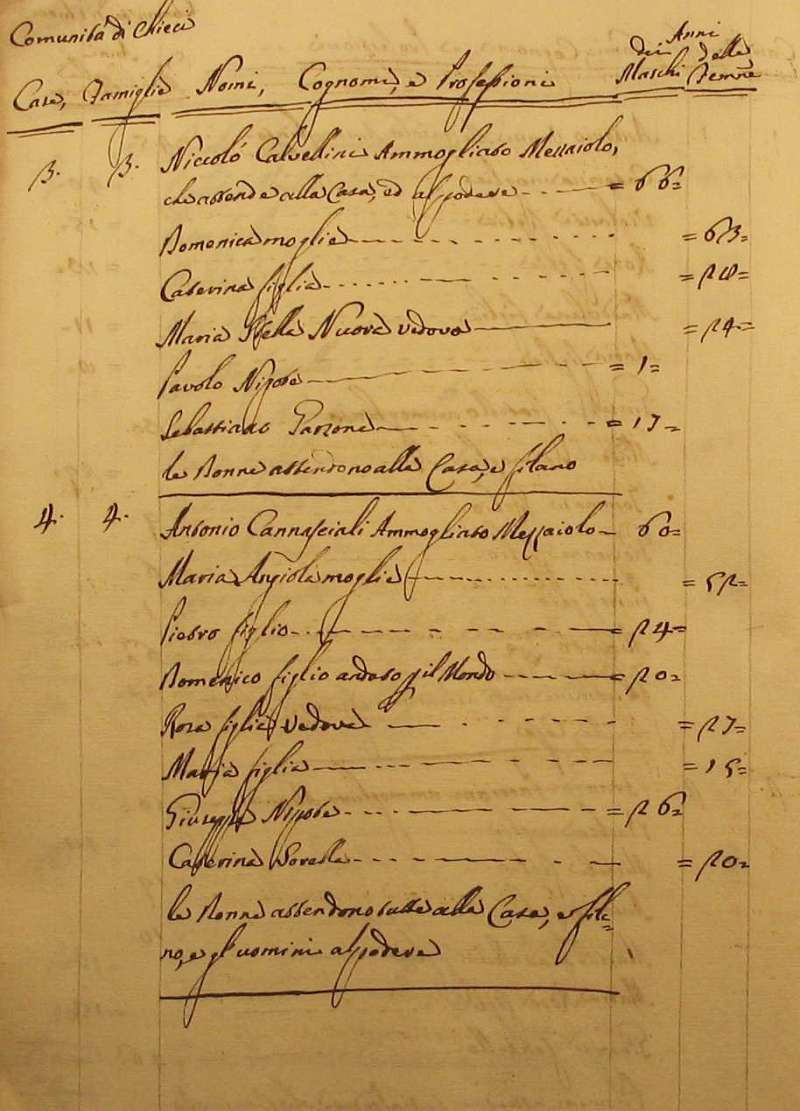 Comunità di Chieci
Anni
dei delle
Case, Famiglie Nomi, Cognomi, e Professioni Maschi Femne
3. 3. Niccolò Calvellini Ammogliato Mezzaiolo,
che attende alla Casa, ed al podere = 66=
Domenica moglie = 63=
Caterina figlia = 28=
Maria Stella Nuora vedova = 24=
Pavolo Nipote = 1=
Sebastiano Garzone = 17=
le Donne attendono alla Casa, e filano
4. 4. Antonio Cannasciali Ammogliato Mezzaiolo 60=
Maria Angiola moglie = 52=
Pietro figlio = 24=
Domenico figlio andato pil Mondo = 20=
Rosa figlia vedova = 27=
Maria figlia = 15=
Giuseppe Nipote = 26=
Caterina Sorella = 20=
le Donne attendono tutte alla Casa, e fila=
no, e gl'uomini al podere